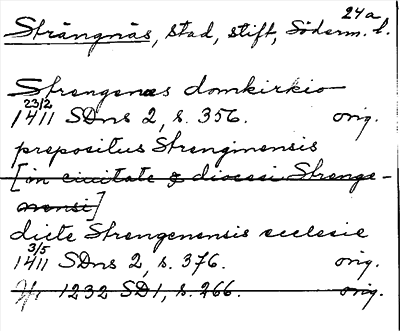 24a
Strängnäs, stad, stift, Söderm. l.
Strengenes domkirkio
23/2 1411 SDns 2, s. 356. orig.
prepositus Strenginensis
[in ciuitate & diocesi Strenge-
nensi]
dicte Strengenensis ecclesie
3/5 1411 SDns 2, s. 376. orig.
1232 SD1, s. 266. orig.